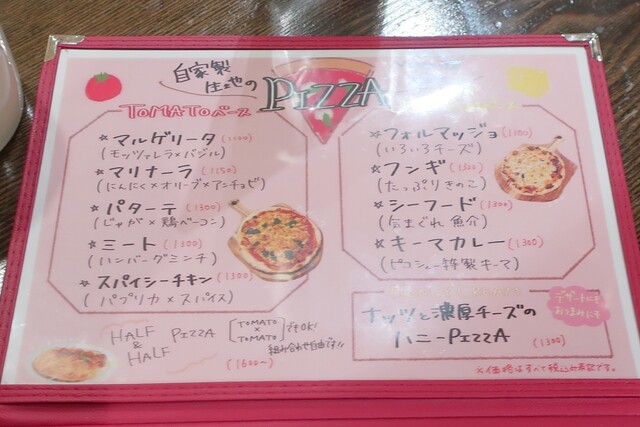 自家製
生地の
PIZZA
TOMATOベース
☆ マルゲリータ (1000)
(モッツァレラ×バジル)
☆ マリナーラ (1150)
(にんにく×オリーブ×アンチョビ)
☆ パターテ (1300)
(じゃが×鶏ベーコン)
☆ ミート (1300)
(ハンバーグミンチ)
☆ スパイシーチキン (1300)
(パプリカ×スパイス)
HALF & HALF PIZZA
[TOMATO × TOMATO] でもOK!
組み合わせ自由です!!
(1600~)
☆ フォルマッジョ (1300)
(いろいろチーズ)
☆ フンギ (1300)
(たっぷりきのこ)
☆ シーフード (1300)
(気まぐれ魚介)
☆ キーマカレー (1300)
(ピコシュー特製キーマ)
ナッツと濃厚チーズの
ハニーPIZZA (1300)
デザートにも
おつまみにも
※価格はすべて税込み表記です。